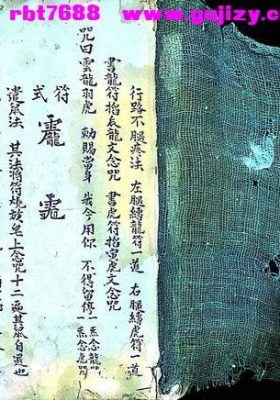 rbt7688
www.gujizy.c
行路不腿疼法 左腿縛龍符一道 右腿縛虎符一道
書龍符掐辰龍文念咒 書虎符掐寅虎文念咒
咒曰雲龍羽虎 勅賜當身 我今用你 不得留停 一炁念龍咒 一炁念虎咒
符式
遣鼠法 其法將符燒放皂上念咒十二遍其鼠自退也